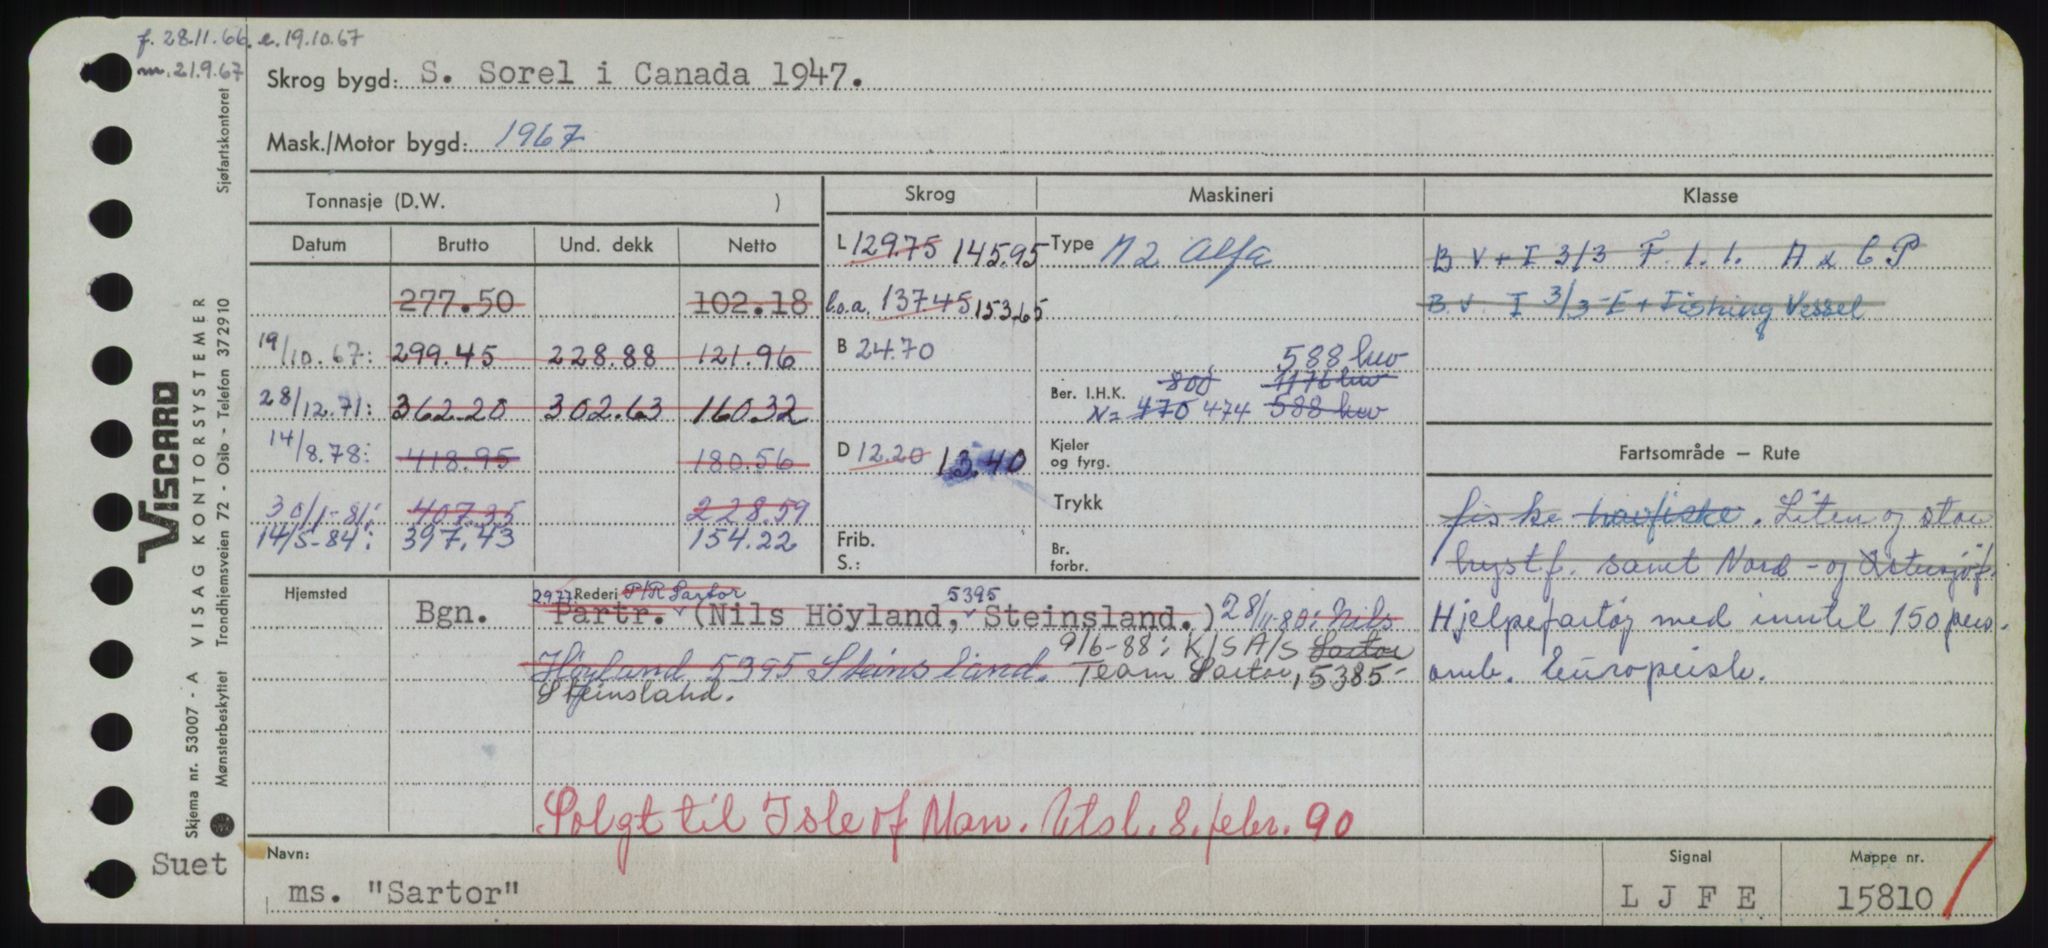 f. 28.11.66. e. 19.10.67
m. 21.9.67
Skrog bygd: S. Sorel i Canada 1947.
Mask./Motor bygd: 1967
Tonnasje (D.W. )
Skrog
Maskineri
Klasse
Datum Brutto Und. dekk Netto
L 129.75 145.95
Type N 2 Alfa
B V + I 3/3 F. 1. 1. A & C P
277.50 102.18
l.o.a. 137.45 153.65
B. V. I 3/3-E + Fishing Vessel
19/10.67: 299.45 228.88 121.96
B 24.70
588 kw
28/12.71: 362.20 302.63 160.32
Ber. I.H.K. 800 1176 kw
N= 470 474 588 kw
14/8.78: 418.95 180.56
D 12.20 13.40
Kjeler
og fyrg.
Fartsområde – Rute
30/1-81: 407.35 228.59
Trykk
fiske havfiske. Liten og stor
14/5-84: 397.43 154.22
Frib.
S.:
Br.
forbr.
kystf. samt Nord- og Østersjøf.
Hjemsted
Rederi
2977 P/R Sartor
Bgn. Partr. (Nils Höyland, 5395 Steinsland.) 28/11-80: Nils
Hjelpefartøy med inntil 150 pers.
Höyland 5395 Steinsland. 9/6-88: K/S A/S Sartor
Team Sartor, 5385-
omb. Europeisk.
Steinsland.
Solgt til Isle of Man. Utsl. 8. febr. 90
Suet
Navn:
ms. "Sartor"
Signal
L J F E
Mappe nr.
15810
Skjema nr. 53007 - A VISAG KONTORSYSTEMER
VISCARD
Mønsterbeskyttet Trondhjemsveien 72 - Oslo - Telefon 372910
Sjøfartskontoret